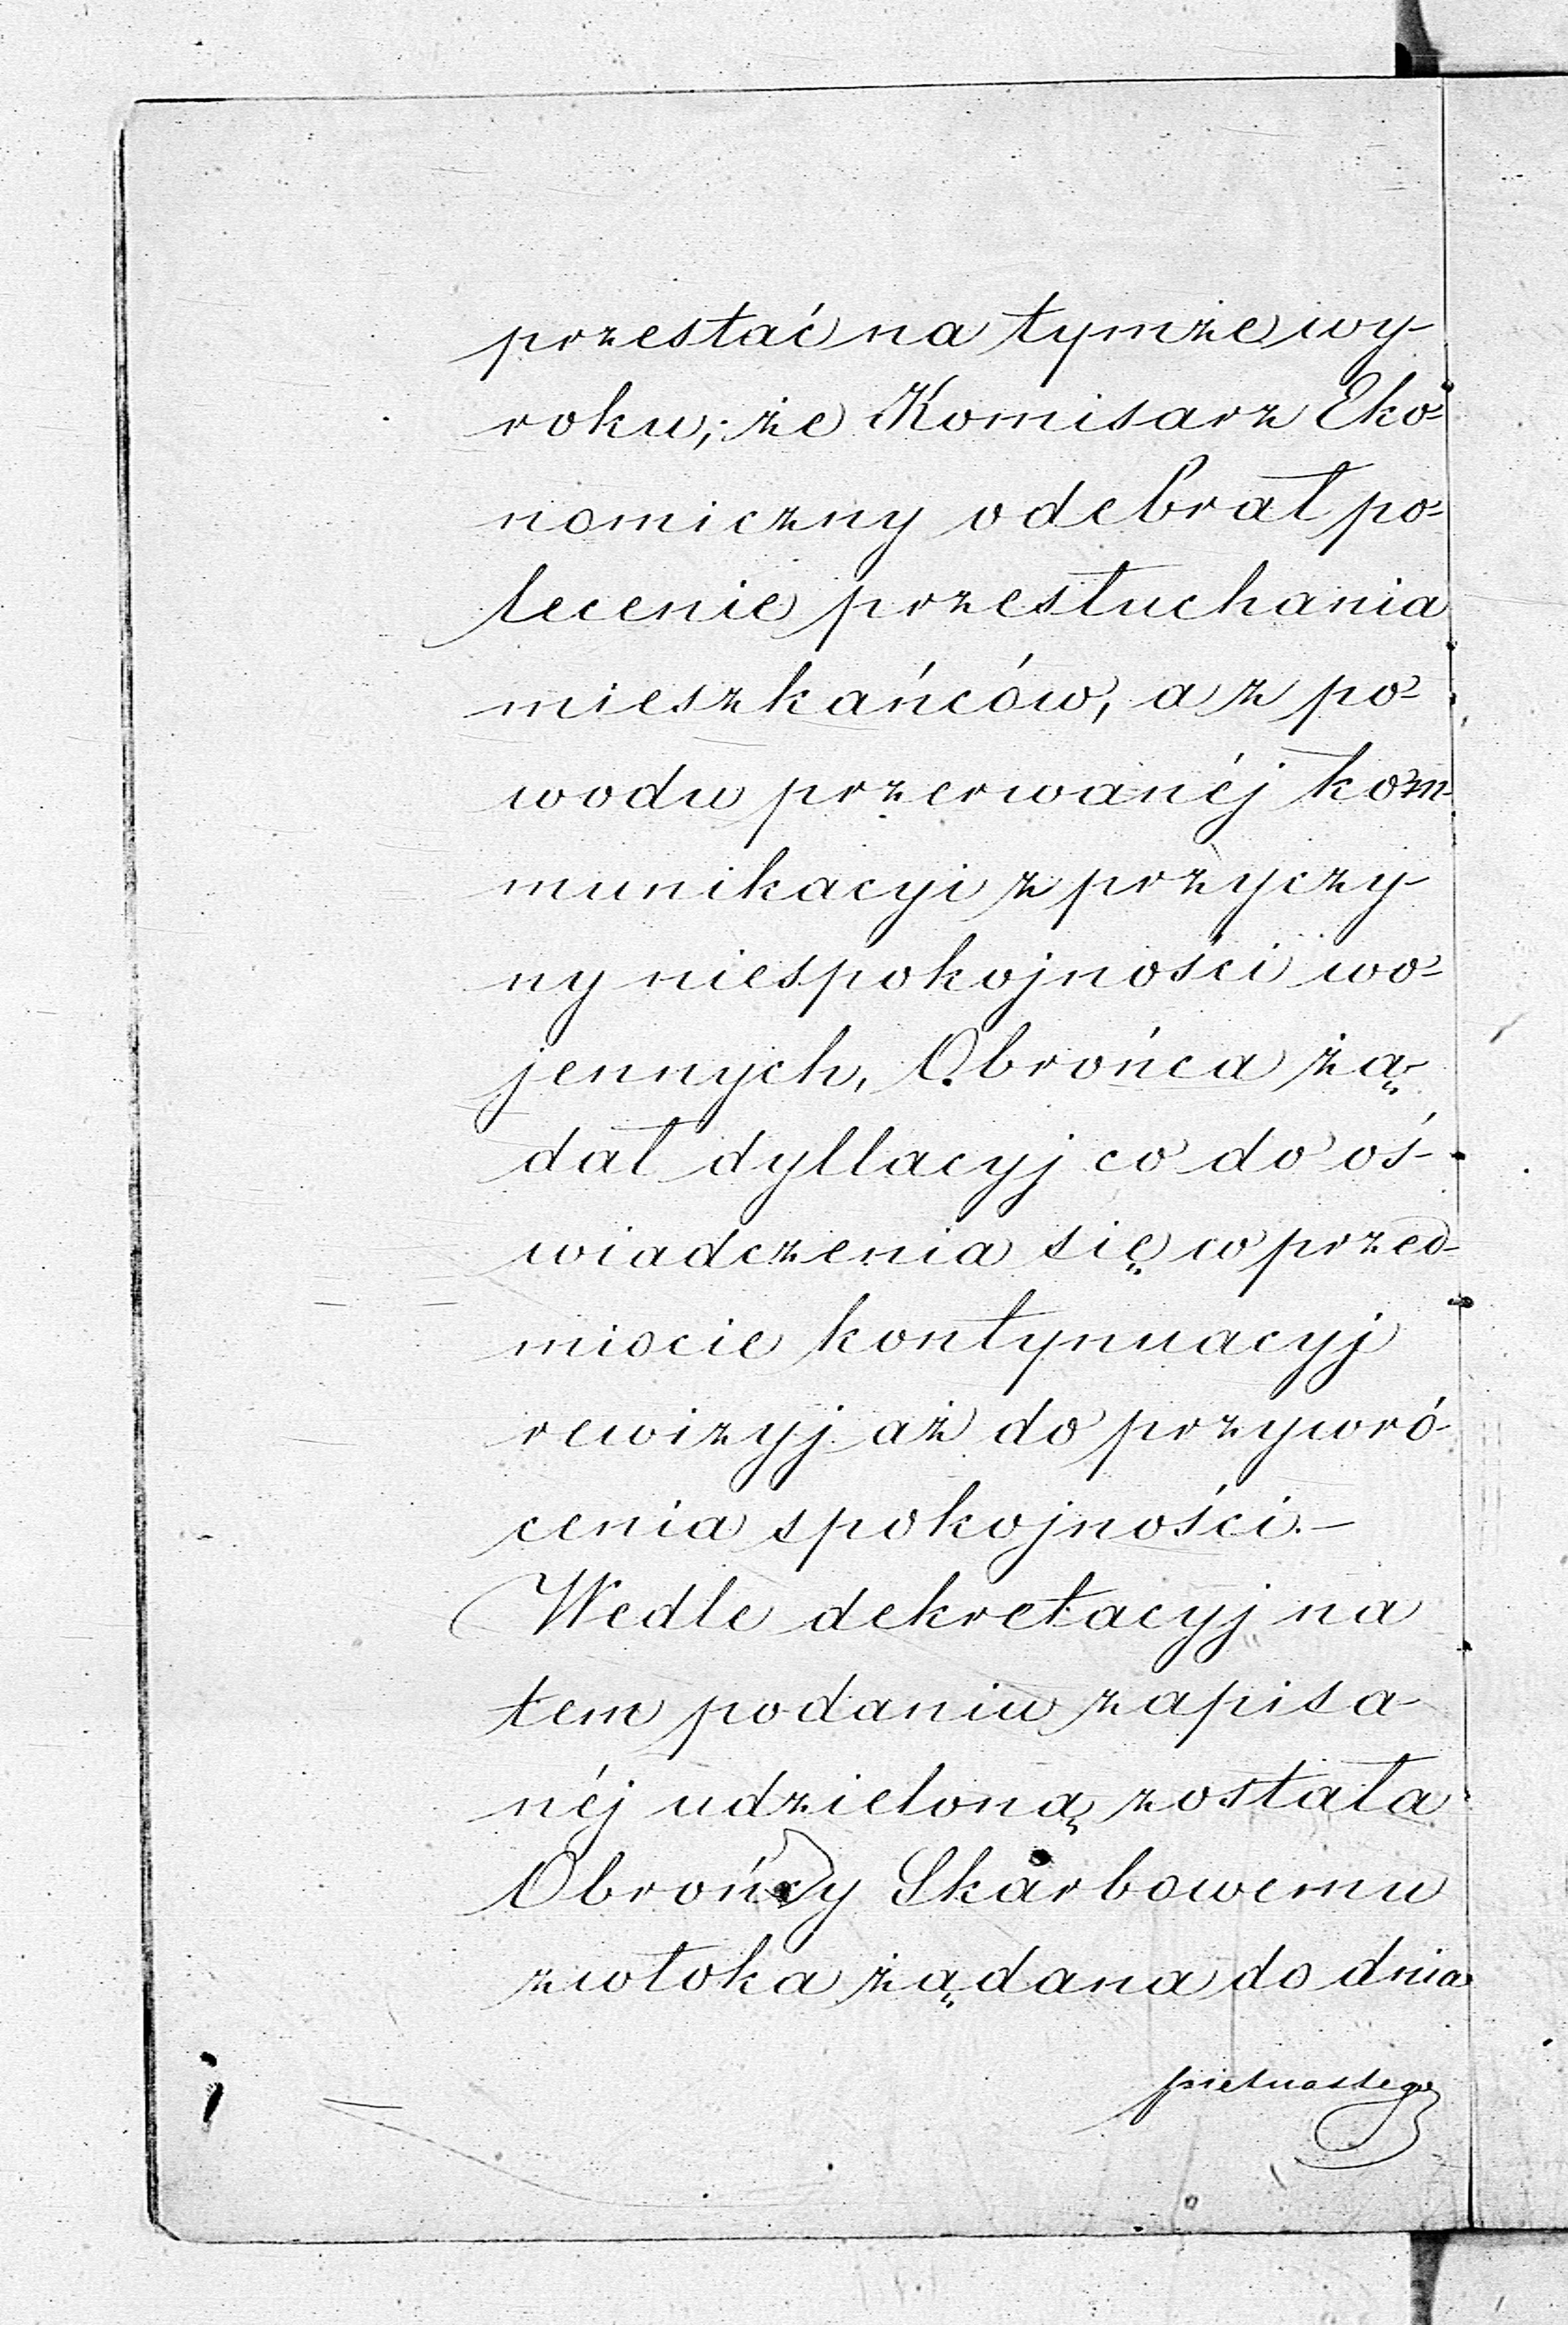 przestać na tymże wy-
roku; że Komisarz Eko-
nomiczny odebrał po-
lecenie przesłuchania
mieszkańców, a z po-
wodu przerwanéj kom-
munikacyi z przyczy-
ny niespokojności wo-
jennych, Obrońca żą-
dał dyllacyj co do oś-
wiadczenia się w przed-
miocie kontynuacyj
rewizyj aż do przywró-
cenia spokojności.—
Wedle dekretacyj na
tem podaniu zapisa-
néj udzieloną została
Obrońcy Skarbowemu
zwłoka żądana do dnia
pietnastego